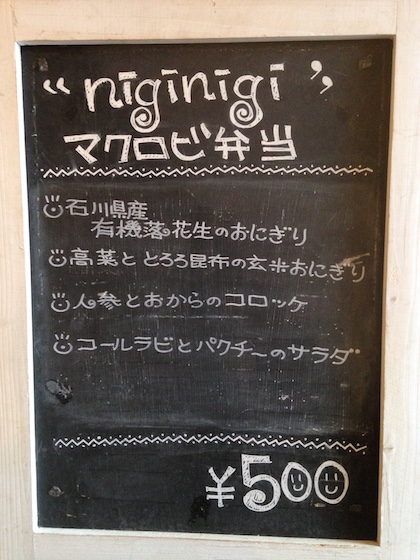 “niginigi”
マクロビ弁当
石川県産
有機落花生のおにぎり
高菜ととろろ昆布の玄米おにぎり
人参とおからのコロッケ
コールラビとパクチーのサラダ
¥500